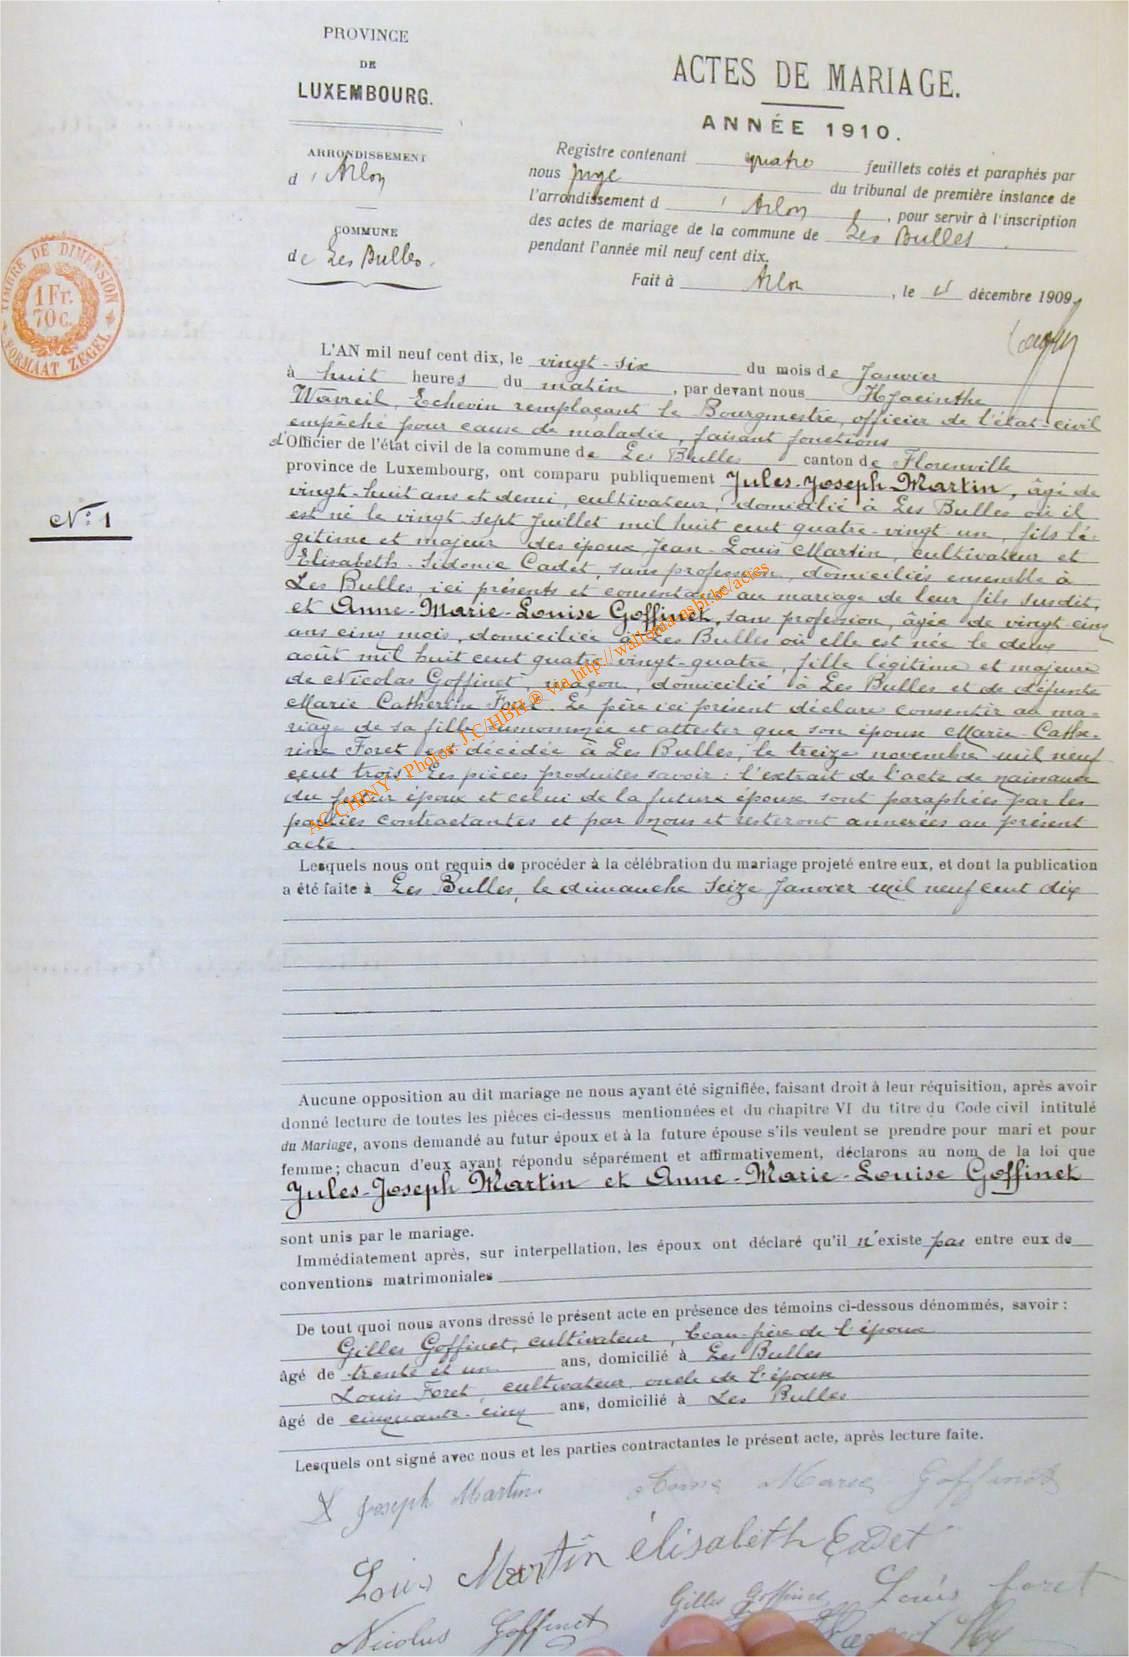 PROVINCE
DE
LUXEMBOURG.
ARRONDISSEMENT
d'Arlon
COMMUNE
de Les Bulles.
ACTES DE MARIAGE.
ANNÉE 1910.
Registre contenant quatre feuillets cotés et paraphés par
nous juge du tribunal de première instance de
l'arrondissement d'Arlon, pour servir à l'inscription
des actes de mariage de la commune de Les Bulles.
pendant l'année mil neuf cent dix.
Fait à Arlon, le décembre 1909.
TIMBRE DE DIMENSION
1 Fr.
70 c.
FORMAAT ZEGEL
N: 1
L'AN mil neuf cent dix, le vingt-six du mois de Janvier
à huit heures du matin, par devant nous Hyacinthe
Wavreil, Echevin remplaçant le Bourgmestre, officier de l'état-civil
empêché pour cause de maladie, faisant fonctions
d'Officier de l'état civil de la commune de Les Bulles canton de Florenville
province de Luxembourg, ont comparu publiquement Jules-Joseph Martin, âgé de
vingt-huit ans et demi, cultivateur, domicilié à Les Bulles où il
est né le vingt-sept Juillet mil huit cent quatre-vingt-un, fils lé-
gitime et majeur des époux Jean-Louis Martin, cultivateur et
Elisabeth-Sidonie Cadet, sans profession, domiciliés ensemble à
Les Bulles, ici présents et consentant au mariage de leur fils susdit,
et Anne-Marie-Louise Goffinet, sans profession, âgée de vingt-cinq
ans cinq mois, domiciliée à Les Bulles où elle est née le deux
août mil huit cent quatre-vingt-quatre, fille légitime et majeure
de Nicolas Goffinet, maçon, domicilié à Les Bulles et de défunte
Marie Catherine Foret. Le père ici présent déclare consentir au ma-
riage de sa fille susnommée et attester que son épouse Marie-Cathe-
rine Foret est décédée à Les Bulles, le treize novembre mil neuf
cent trois. Les pièces produites savoir : l'extrait de l'acte de naissance
du futur époux et celui de la future épouse sont paraphées par les
parties contractantes et par nous et resteront annexées au présent
acte.
AC CHINY - Photos J.C/HBH @ via http://wallonia.nsbl.be/actes
Lesquels nous ont requis de procéder à la célébration du mariage projeté entre eux, et dont la publication
a été faite à Les Bulles, le dimanche seize Janvier mil neuf cent dix
Aucune opposition au dit mariage ne nous ayant été signifiée, faisant droit à leur réquisition, après avoir
donné lecture de toutes les pièces ci-dessus mentionnées et du chapitre VI du titre du Code civil intitulé
du Mariage, avons demandé au futur époux et à la future épouse s'ils veulent se prendre pour mari et pour
femme ; chacun d'eux ayant répondu séparément et affirmativement, déclarons au nom de la loi que
Jules-Joseph Martin et Anne-Marie-Louise Goffinet
sont unis par le mariage.
Immédiatement après, sur interpellation, les époux ont déclaré qu'il n'existe pas entre eux de
conventions matrimoniales
De tout quoi nous avons dressé le présent acte en présence des témoins ci-dessous dénommés, savoir :
Gilles Goffinet, cultivateur, beau-frère de l'époux
âgé de trente et un ans, domicilié à Les Bulles
Louis Foret, cultivateur, oncle de l'épouse
âgé de cinquante-cinq ans, domicilié à Les Bulles
Lesquels ont signé avec nous et les parties contractantes le présent acte, après lecture faite.
J Joseph Martin Anna Maria Goffinet
Louis Martin élisabeth Cadet
Gilles Goffinet Louis foret
Nicolas Goffinet